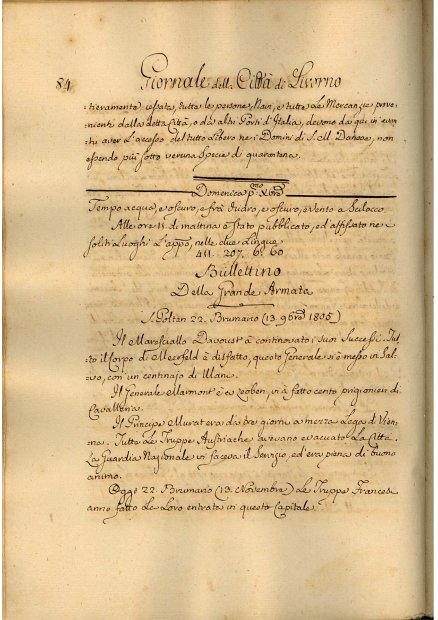 84. Giornale della Città di Livorno
tieramente cessata, tutte le persone, Navi, e tutte Le Mercanzie prove:
nienti dalla detta Città, o da altri Porti d'Italia, devono da qui in avan
che aver L'accesso del tutto Libero nei Domini di S. M. Danese, non
essendo più sotto veruna Specie di quarantena.
Domenica p.mo Xbre
Tempo acqua, e oscuro, e fra e oscuro, e vento a Scilocco
Alle ore 11. di mattina è stato pubblicato, ed affissato ne
soliti Luoghi L'appo, nelle due Lingue
411. 207. 6. 60
Bullettino
Della Grande Armata
S. Polten 22. Brumario (13. 9bre 1805)
Il Maresciallo Davoust à continovato i suoi Successi. Tut:
to il Corpo di Meerfeld è disfatto, questo Generale si è messo in Sal:
vo, con un centinajo di Ulani.
Il Generale Marmont è a Leoben, vi à fatto cento prigionieri di
Cavalleria.
Il Principe Murat era da tre giorni a mezza Lega di Vien:
na. Tutte Le Truppe Austriache avevano evacuato La Città.
La Guardia Nazionale vi faceva il Servizio, ed era piena di buono
animo.
Oggi 22. Brumario (13. Novembre) Le Truppe Francesi
anno fatto La Loro entrata in questa Capitale